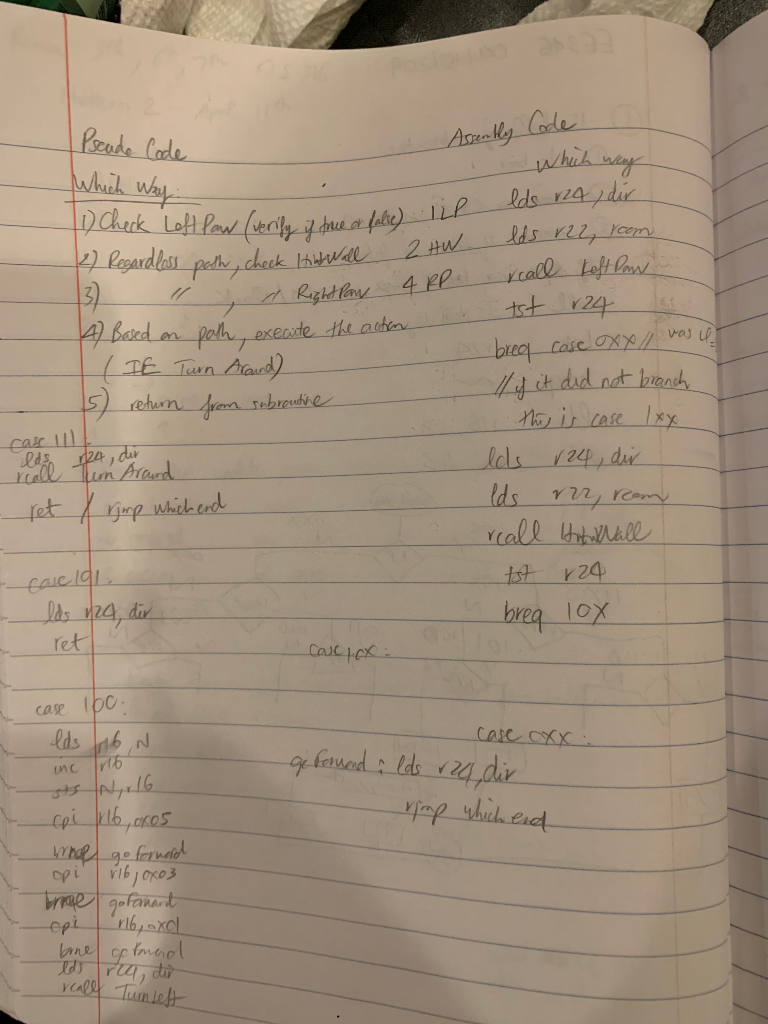 Pseudo Code
Which Way:
1) Check LeftPaw (verify if true or false) 1 LP
2) Regardless path, check HitWall 2 HW
3) " , " RightPaw 4 RP
4) Based on path, execute the action
( IE Turn Around)
5) return from subroutine
case 111:
lds r24, dir
rcall Turn Around
ret / rjmp whichend
case 101:
lds r24, dir
ret
case 100:
lds r16, N
inc r16
sts N, r16
cpi r16, 0x05
goforward
cpi r16, 0x03
goforward
cpi r16, 0x01
brne goforward
lds r24, dir
rcall TurnLeft
Assembly Code
Which way
lds r24, dir
lds r22, room
rcall LeftPaw
tst r24
breq case 0xx // was
// if it did not branch
this is case 1xx
lds r24, dir
lds r22, room
rcall HitWall
tst r24
breq 10X
case 10x:
case 0xx:
goForward: lds r24, dir
rjmp whichend